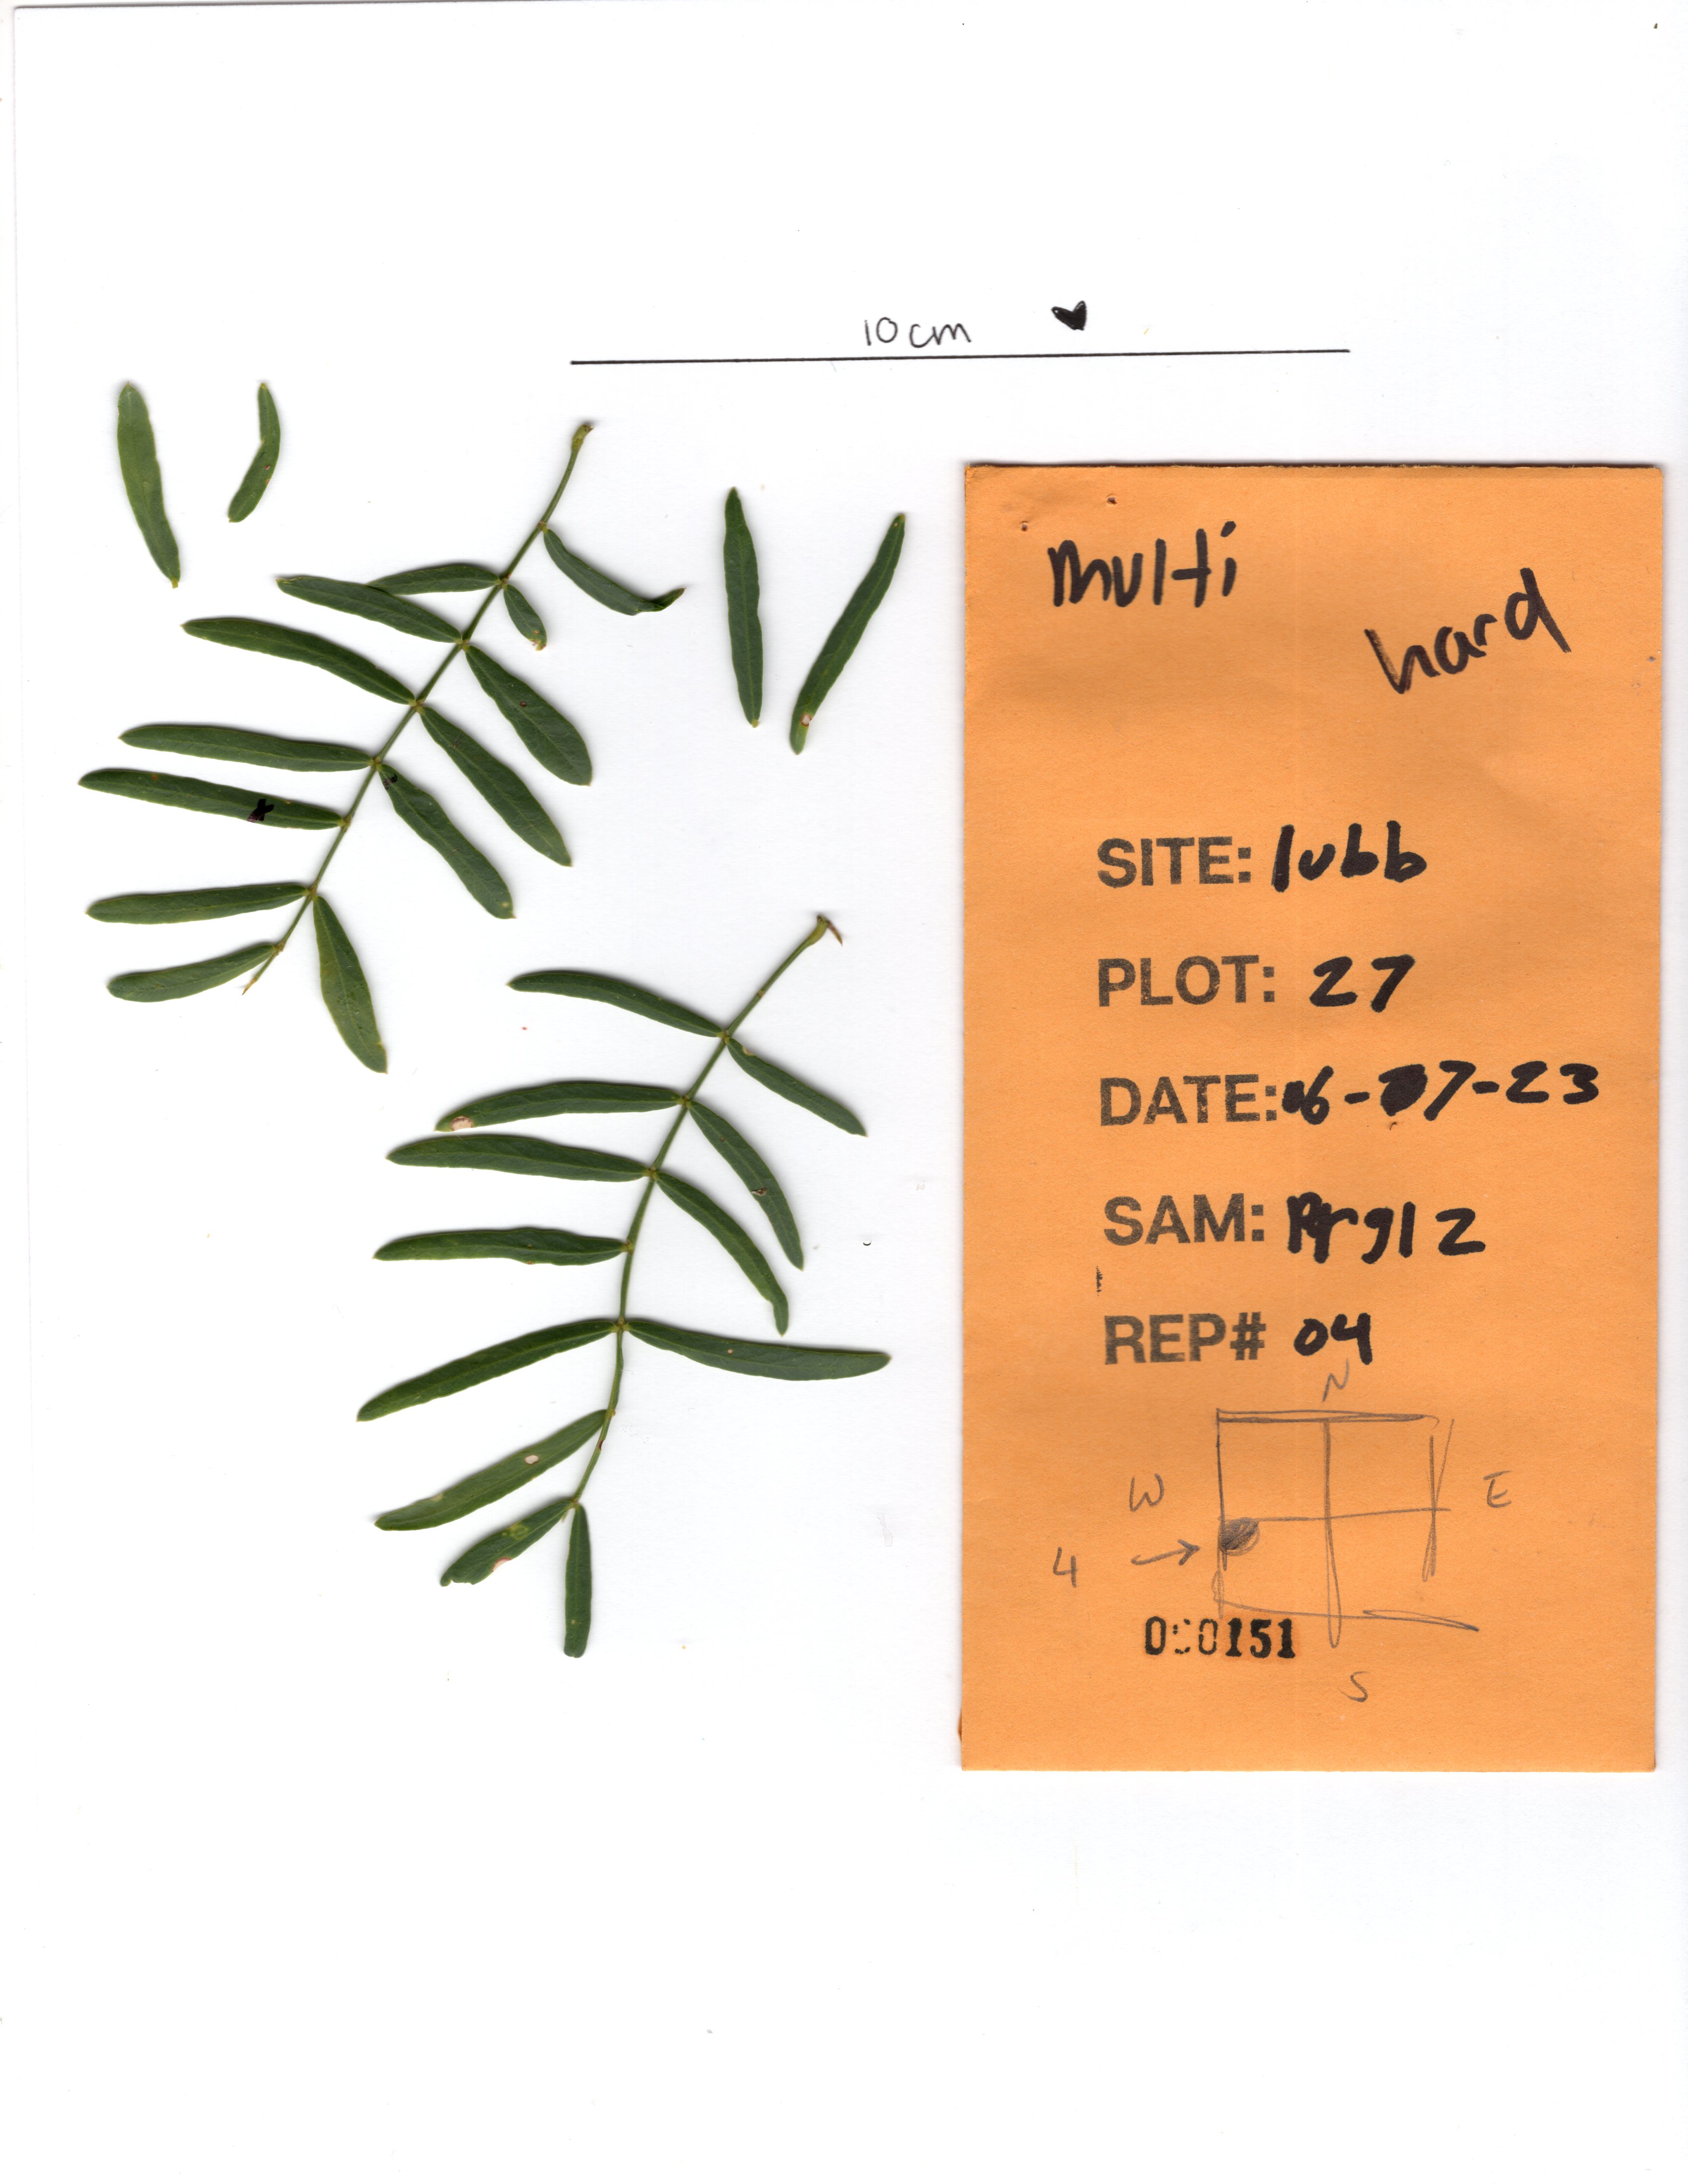 10cm
multi
hard
SITE: lubb
PLOT: 27
DATE: 06-07-23
SAM: Prgl2
REP# 04
N
W
E
4
000151
S